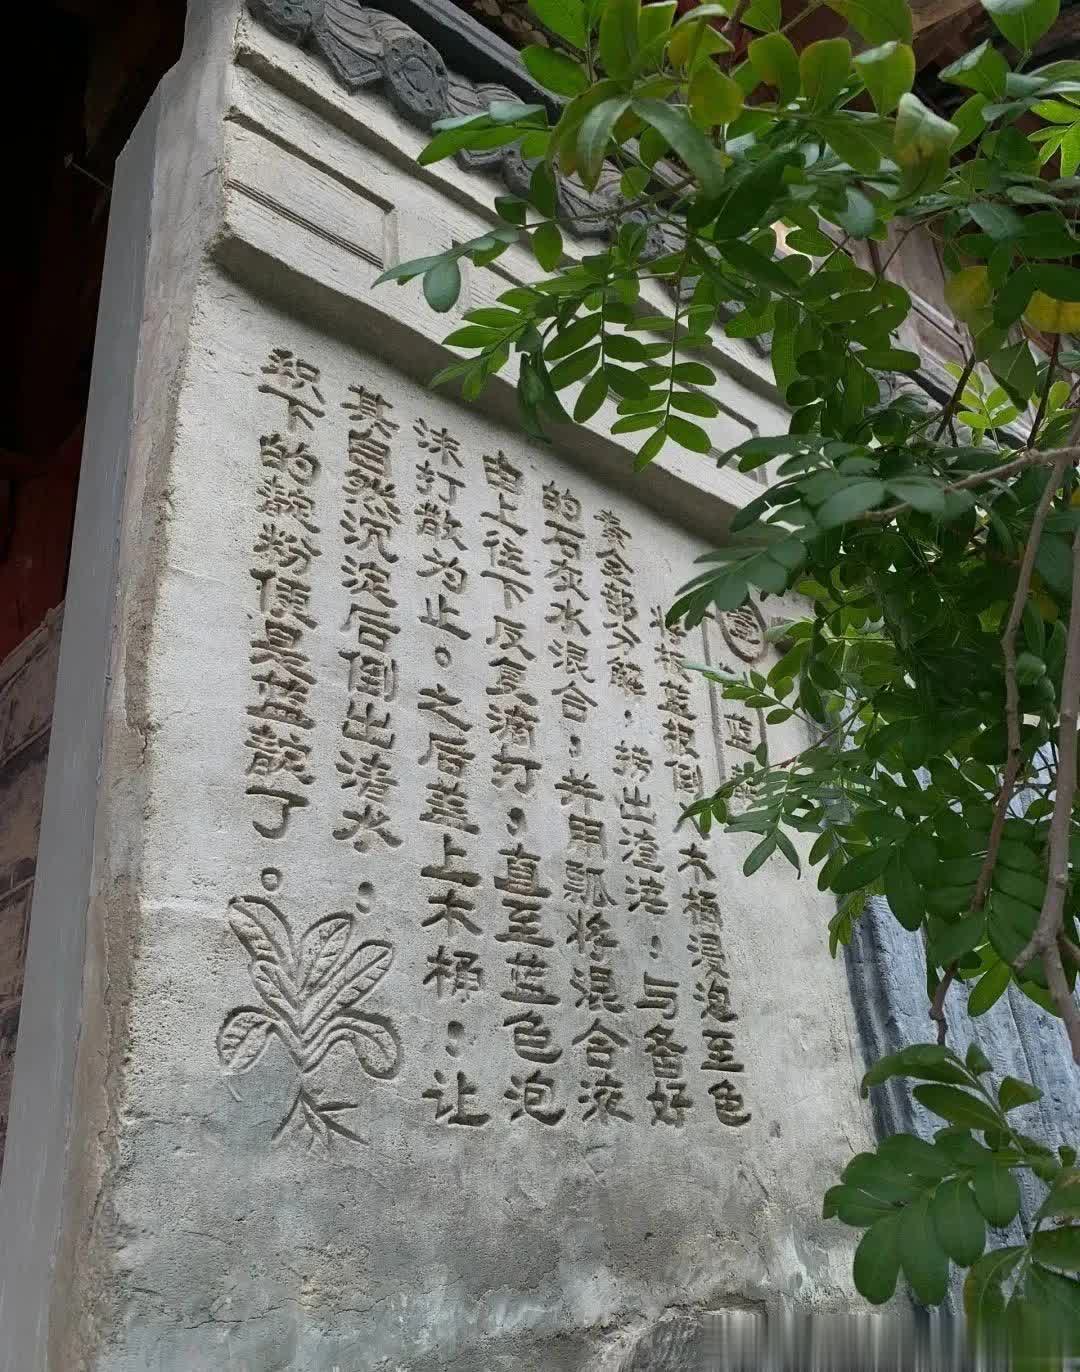 蓝
将板蓝根倒入木桶浸泡至色
素全部分解；捞出渣滓；与备好
的石灰水混合；并用瓢将混合液
由上往下反复滴打；直至蓝色泡
沫打散为止。之后盖上木桶；让
其自然沉淀后倒出清水；
积下的靛粉便是蓝靛了。